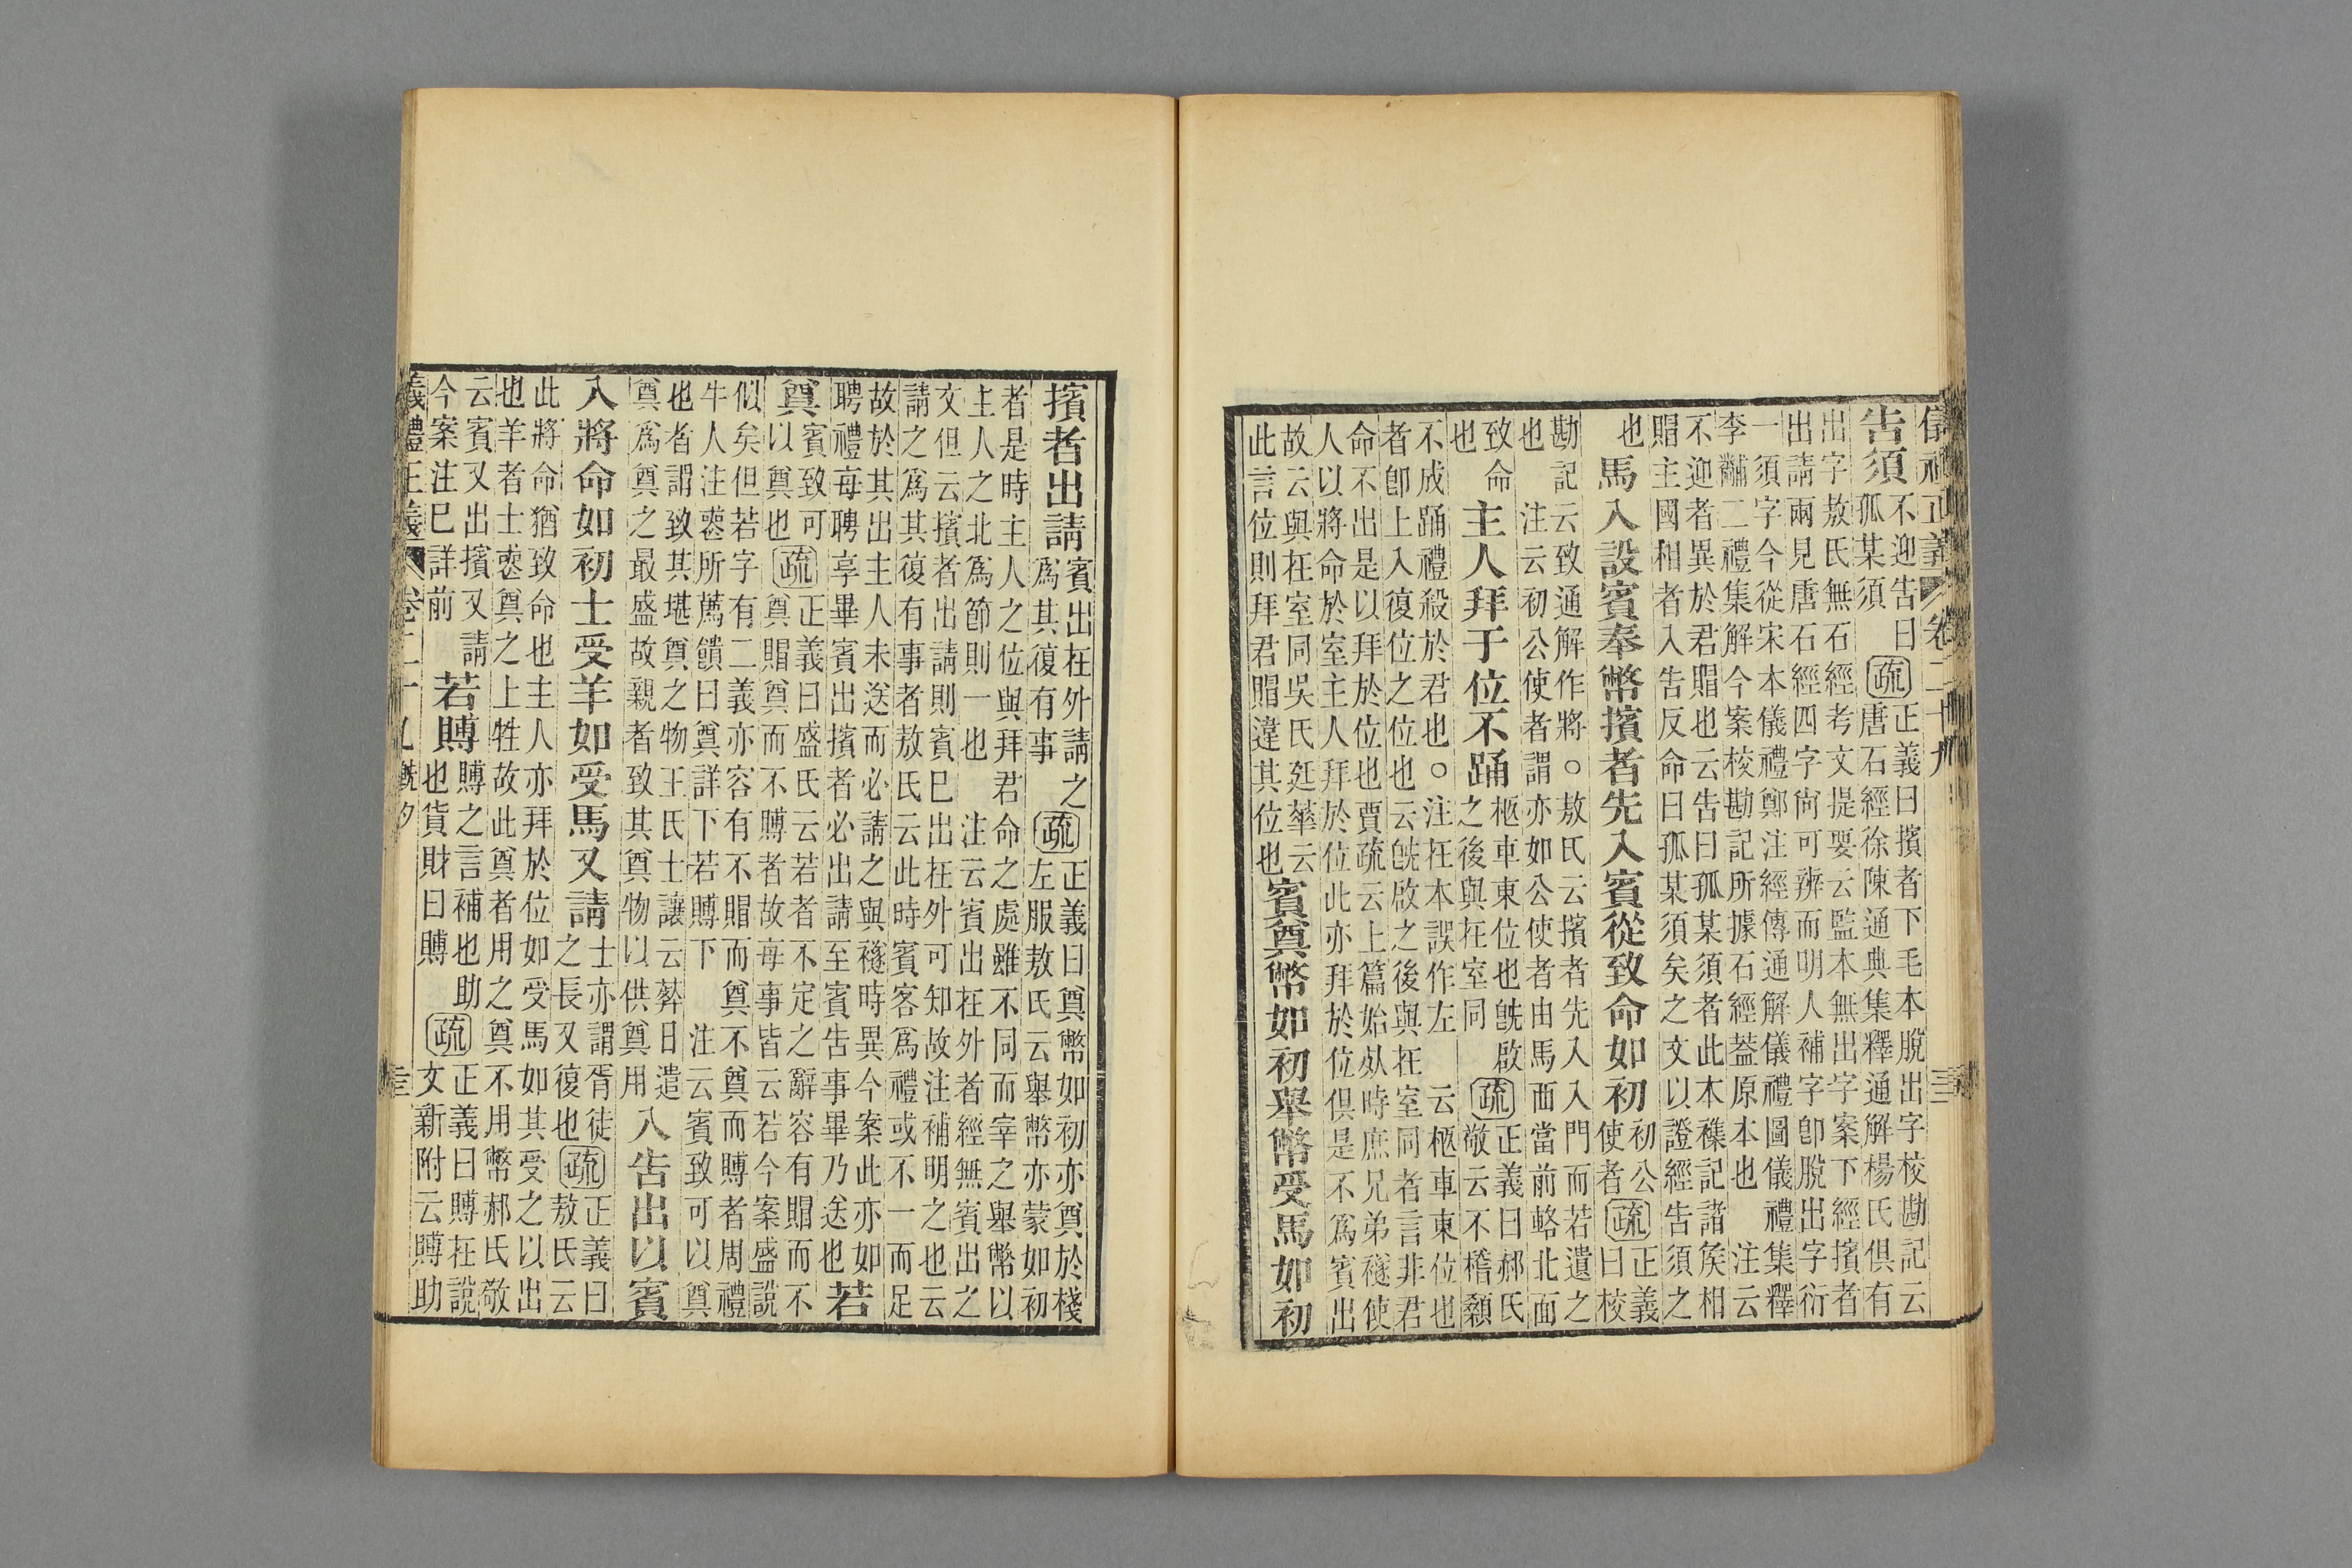 儀禮正義 卷二十九
告須 不迎告曰
孤某須
疏 正義曰擯者下毛本脫出字校勘記云
唐石經徐陳通典集釋通解楊氏俱有
出字敖氏無石經考文提要云監本無出字案下經擯者
出請兩見唐石經四字尙可辨而明人補字卽脫出字衍
一須字今從宋本儀禮鄭注經傳通解儀禮圖儀禮集釋
李黼二禮集解今案校勘記所據石經葢原本也 注云
不迎者異於君賵也云告曰孤某須者此本襍記諸矦相
賵主國相者入告反命曰孤某須矣之文以證經告須之
也 馬入設賓奉幣擯者先入賓從致命如初 初公
使者
疏 正義
曰校
勘記云致通解作將○敖氏云擯者先入入門而若遺之
也 注云初公使者謂亦如公使者由馬西當前輅北面
致命
也
主人拜于位不踊 柩車東位也旣啟
之後與在室同
疏 正義曰郝氏
敬云不稽顙
不成踊禮殺於君也○注在本誤作左 云柩車東位也
者卽上入復位之位也云旣啟之後與在室同者言非君
命不出是以拜於位也賈疏云上篇始㱽時庶兄弟襚使
人以將命於室主人拜於位此亦拜於位俱是不爲賓出
故云與在室同吳氏廷華云
此言位則拜君賵違其位也
賓奠幣如初舉幣受馬如初
擯者出請 賓出在外請之
爲其復有事
疏 正義曰奠幣如初亦奠於棧
左服敖氏云舉幣亦蒙如初
者是時主人之位與拜君命之處雖不同而宰之舉幣以
主人之北爲節則一也 注云賓出在外者經無賓出之
文但云擯者出請則賓巳出在外可知故注補明之也云
請之爲其復有事者敖氏云此時賓客爲禮或不一而足
故於其出主人未送而必請之與襚時異今案此亦如
聘禮每聘享畢賓出擯者必出請至賓告事畢乃送也
若
奠 賓致可
以奠也
疏 正義曰盛氏云若者不定之辭容有賵而不
奠賵奠而不賻者故每事皆云若今案盛說
似矣但若字有二義亦容有不賵而奠不奠而賻者周禮
牛人注喪所薦饋曰奠詳下若賻下 注云賓致可以奠
也者謂致其堪奠之物王氏士讓云葬日遣
奠爲奠之最盛故親者致其奠物以供奠用
入告出以賓
入將命如初士受羊如受馬又請 士亦謂胥徒
之長又復也
疏 正義曰
敖氏云
此將命猶致命也主人亦拜於位如受馬如其受之以出
也羊者士喪奠之上牲故此奠者用之奠不用幣郝氏敬
云賓又出擯又請
今案注巳詳前
若賻 賻之言補也助
也貨財曰賻
疏 正義曰賻在說
文新附云賻助
義禮正義 卷二十九 旣夕